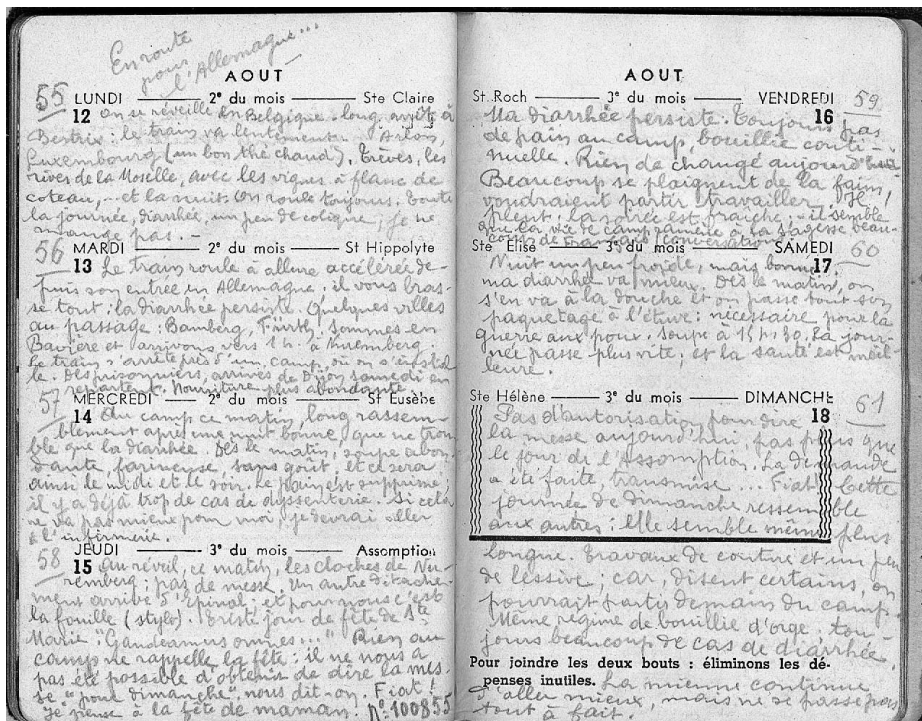 En route
pour
l'Allemagne...
AOUT
55 LUNDI 2e du mois Ste Claire
12 On se réveille en Belgique - long arrêt à
Bertrix : le train va lentement. Arlon,
Luxembourg (un bon thé chaud), Trèves, les
rives de la Moselle, avec les vignes à flanc de
coteau, - et la nuit. On roule toujours. Toute
la journée, diarrhée, un peu de colique ; je ne
mange pas. -
56 MARDI 2e du mois St Hippolyte
13 Le train roule à allure accélérée de-
puis son entrée en Allemagne : il vous bras-
se tout : la diarrhée persiste. Quelques villes
au passage : Bamberg, Fürth, sommes en
Bavière et arrivons vers 14h. à Nuremberg.
Le train s'arrête près d'un camp, où on s'instal-
le. Des prisonniers, arrivés de Dijon samedi en
repartent. Nourriture plus abondante
57 MERCREDI 2e du mois St Eusèbe
14 Au camp ce matin, long rassem-
blement après une nuit bonne, que ne trou-
ble que la diarrhée. Dès le matin, soupe abon-
dante, farineuse, sans goût, et ce sera
ainsi le midi et le soir. Le pain est supprimé :
il y a déjà trop de cas de dyssenterie. Si cela
ne va pas mieux pour moi, je devrai aller
à l'infirmerie.
58 JEUDI 3e du mois Assomption
15 Au réveil, ce matin, les cloches de Nu-
remberg ; pas de messe. Un autre détache-
ment arrive d'Epinal, et pour nous c'est
la fouille (stylo). Triste jour de fête de Ste
Marie "Gaudeamus omnes..." Rien au
camp ne rappelle la fête : il ne nous a
pas été possible d'obtenir de dire la mes-
se "pour dimanche", nous dit-on. Fiat !
Je pense à la fête de maman ! No 100855
AOUT
St Roch 3e du mois VENDREDI 59
16 Ma diarrhée persiste. Toujours pas
de pain au camp, bouillie conti-
nuelle. Rien de changé aujourd'hui
Beaucoup se plaignent de la faim,
voudraient partir travailler. Il
pleut : la soirée est fraîche - il semble
que la vie de camp amène à la sagesse beau-
coup de Français : conversations
Ste Elise 3e du mois SAMEDI 60
17 Nuit un peu froide, mais bonne,
ma diarrhée va mieux. Dès le matin, on
s'en va à la douche et on passe tout son
paquetage à l'étuve : nécessaire pour la
guerre aux poux. Soupe à 15h30. La jour-
née passe plus vite, et la santé est meil-
leure.
Ste Hélène 3e du mois DIMANCHE 61
18 Pas d'autorisation pour dire
la messe aujourd'hui, pas plus que
le jour de l'Assomption. La demande
a été faite, transmise ... Fiat ! Cette
journée de dimanche ressemble
aux autres : elle semble même plus
longue. Travaux de couture et un peu
de lessive ; car, disent certains, on
pourrait partir demain du camp.
Même régime de bouillie d'orge ; tou-
jours beaucoup de cas de diarrhée.
Pour joindre les deux bouts : éliminons les dé-
penses inutiles. La mienne continue
d'aller mieux, mais ne se passe pas
tout à fait.